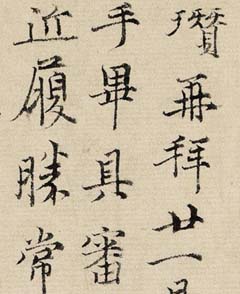 瓚再拜廿一
手畢具審
近履勝常